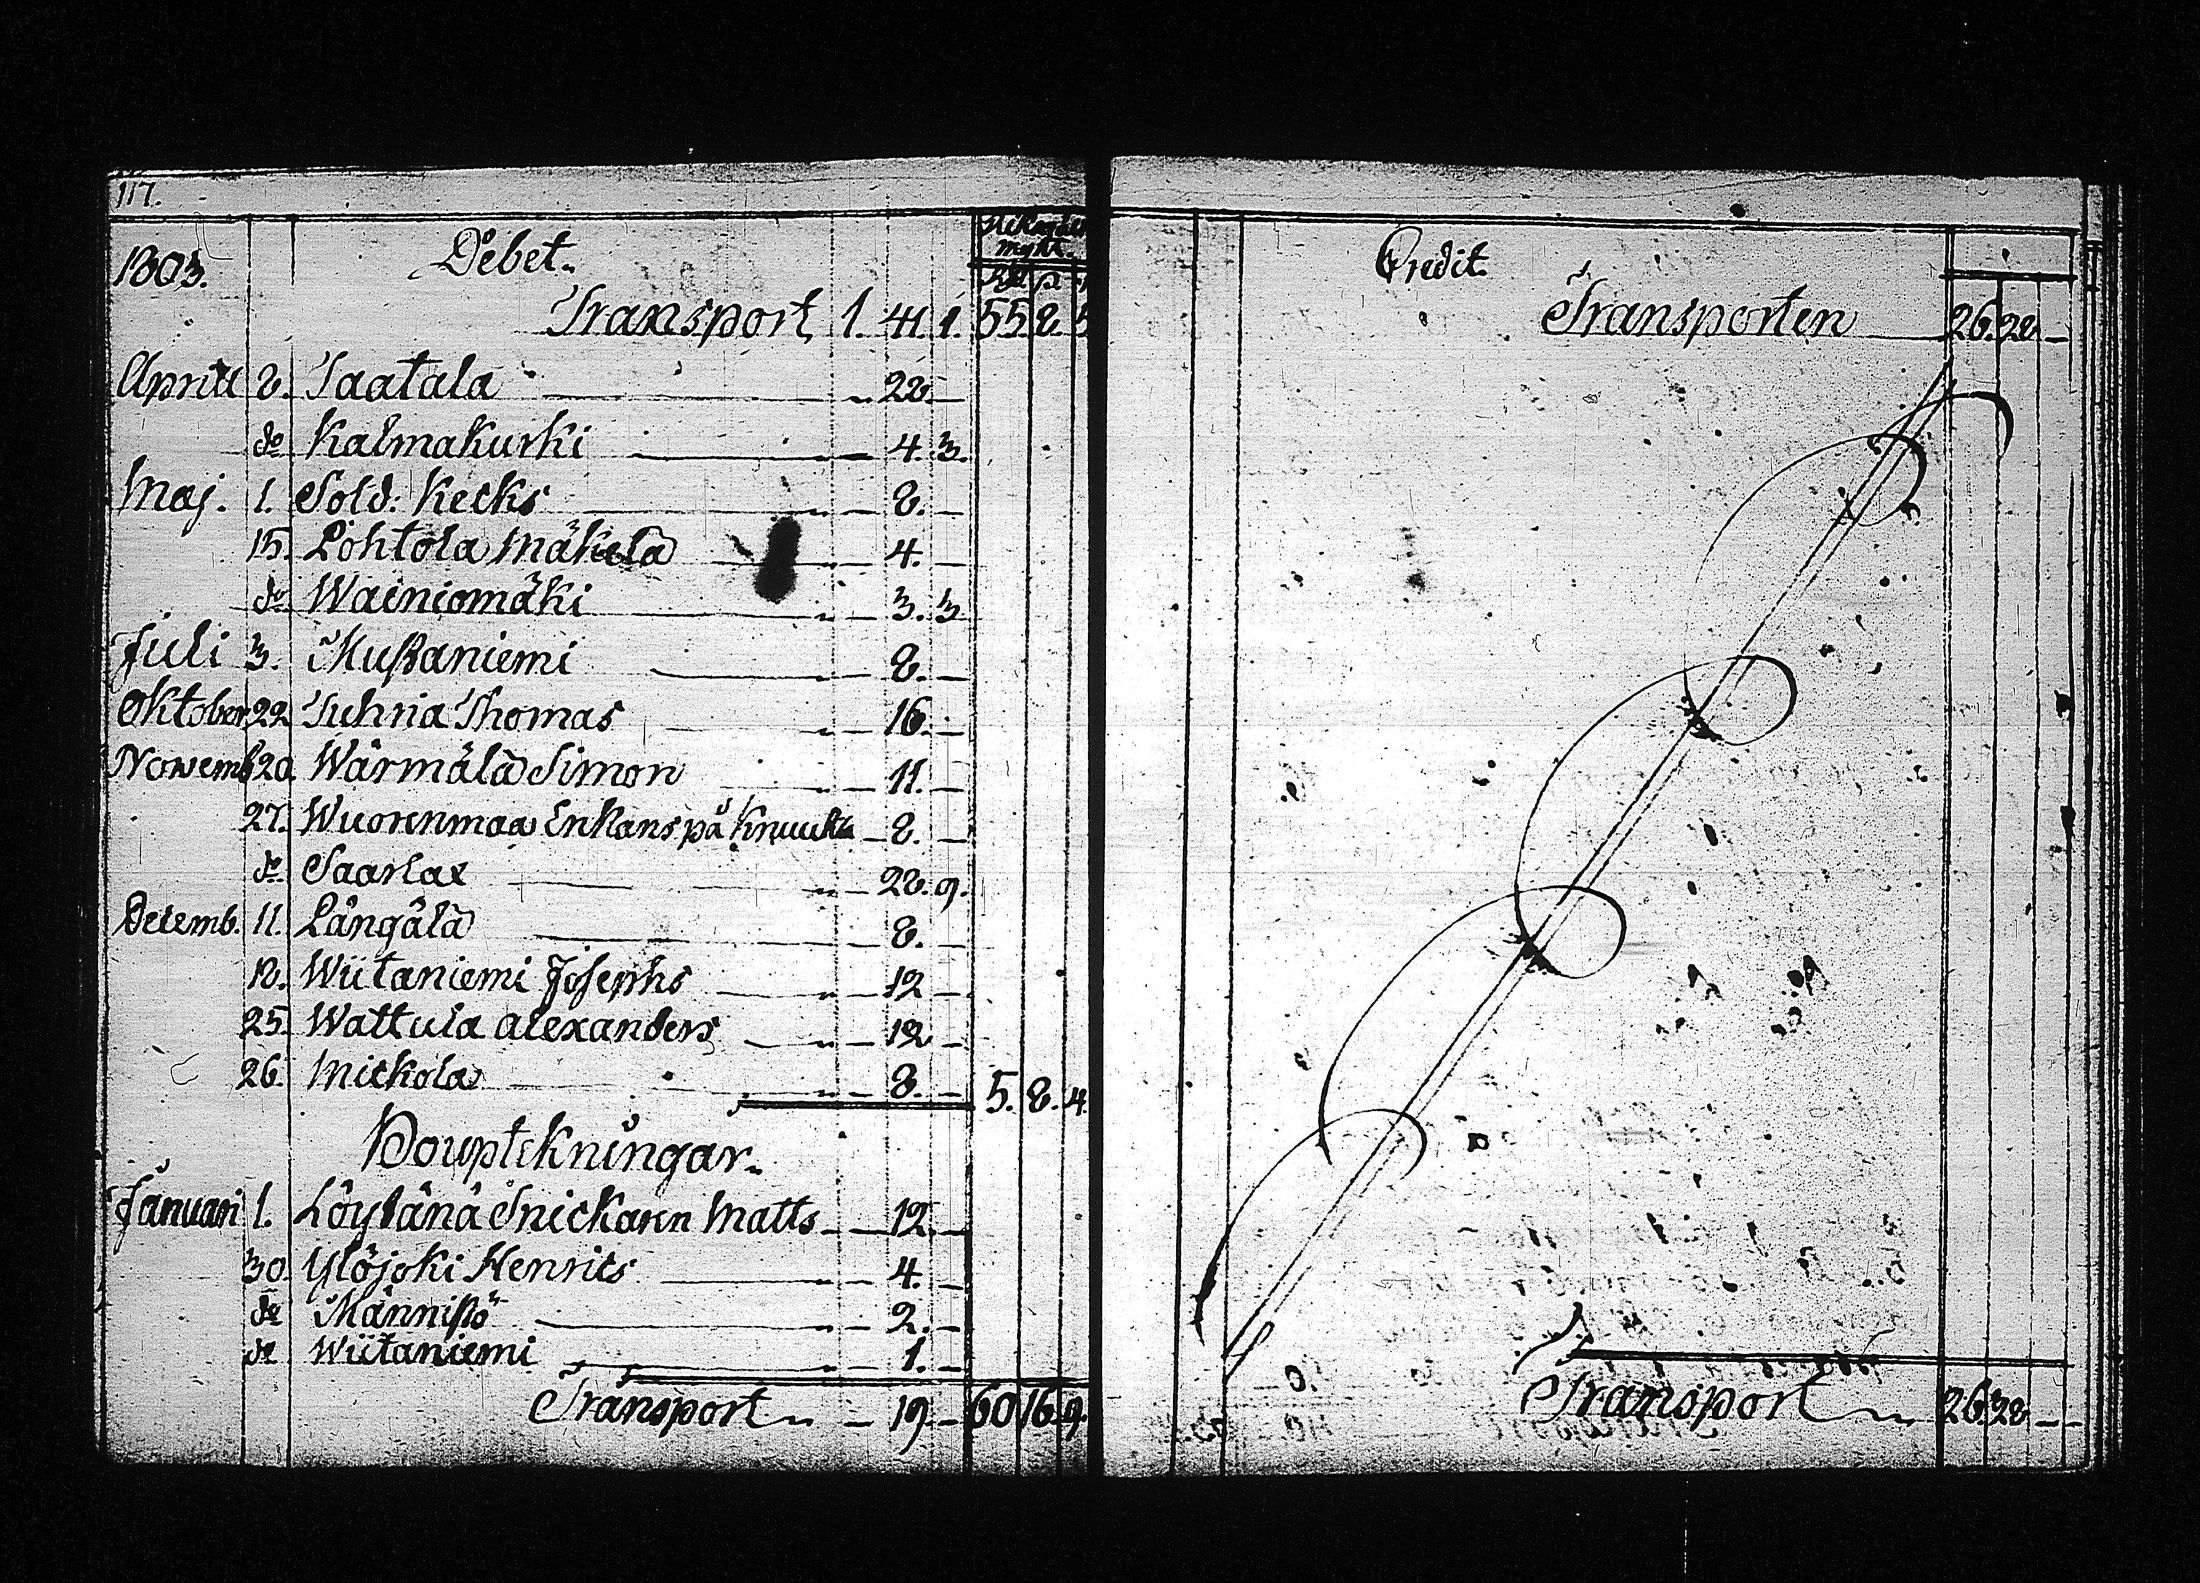 117.
1803.
Debet.
Riksgäld mynt.
Transport 1. 41. 1. 55. 8. 5
Aprill 8. Taatala 28. —
do Kalmakurki 4. 3.
Maj. 1. Sold: Kecks 8. —
15. Lohtola Mäkelä 4. —
do Wainiomäki 3. 3
Juli 3. Mustaniemi 8. —
Oktober 22 Tuhria Thomas 16. —
Novemb 20. Wärmälä Simon 11. —
27. Wuorenmaa Enkans på Knuuti 8. —
do Saarlax 28. 9.
Decemb. 11. Längälä 8. —
18. Wiitaniemi Josephs 12 —
25. Wattula Alexanders 12 —
26. Mickola 8. — 5. 8. 4.
Bouptekningar.
Januari 1. Löytänä Snickaren Matts 12. —
30. Ylöjoki Henrics 4. —
do Männistö 2. —
do Wiitaniemi 1. —
Transport 19 — 60 16. 9.
Credit.
Transporten 26. 28 —
Transport 26. 28 —